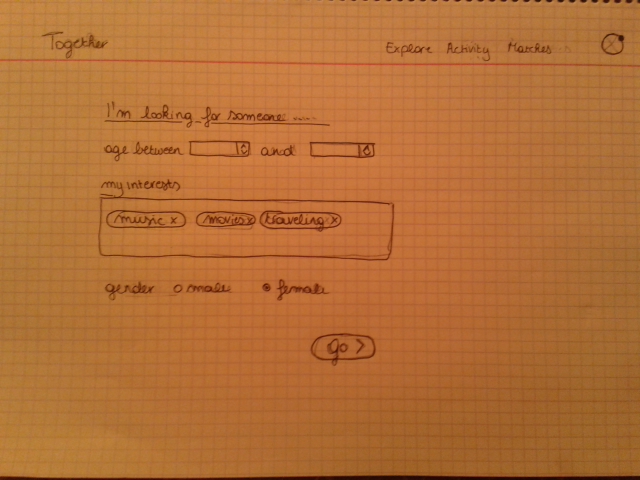 Together Explore Activity Matches
I'm looking for someone ....
age between and
my interests
music x movies x traveling x
gender male female
go >